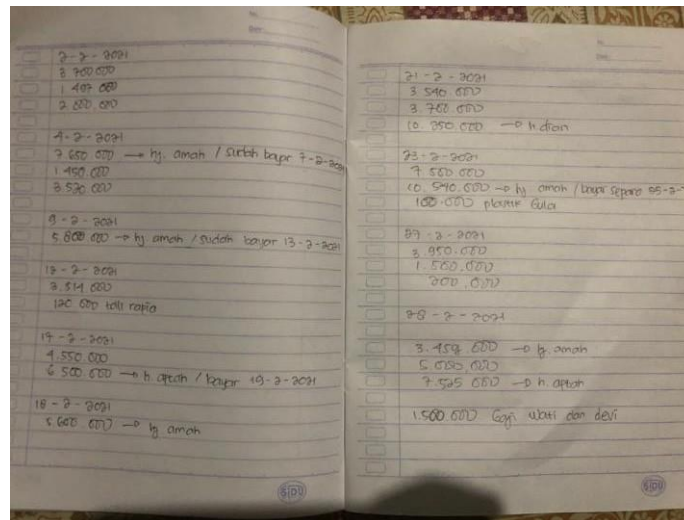 2-2-2021
3 700 000
1 407 000
2.600.000
4-2-2021
7.650.000 → hj. amah / sudah bayar 7-2-2021
1.450.000
3.520.000
9-2-2021
5.800.000 → hj. amah / sudah bayar 13-2-2021
12-2-2021
3.514.000
120 000 tali rapia
17-2-2021
4.550.000
6 500.000 → h. aptah / bayar 19-2-2021
18-2-2021
5 600 000 → hj amah
SIDU
21-2-2021
3 540.000
3.760.000
10.350.000 → h.dian
23-2-2021
7.500 000
10.540.000 → hj amah / bayar separo 25-2-
100.000 plastik Gula
27-2-2021
3.950.000
1.500.000
200.000
28-2-2021
3.459.000 → hj. amah
5.000.000
7.525 000 → h. aptah
1.500.000 Gaji wati dan devi
SIDU